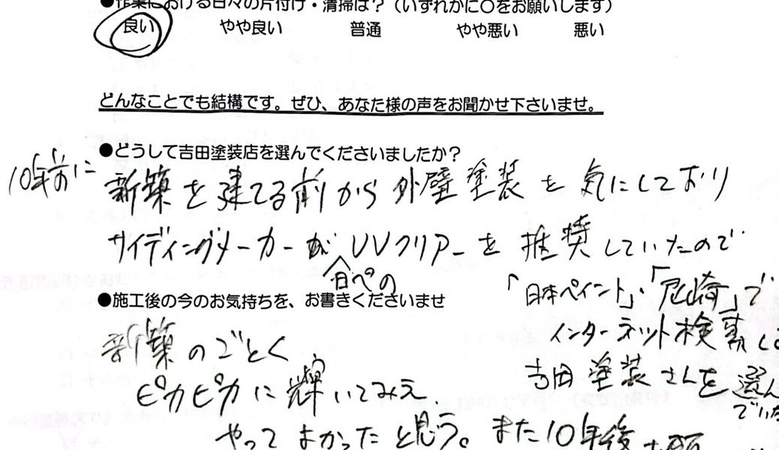 ●作業における日々の片付け・清掃は？（いずれかに〇をお願いします）
良い やや良い 普通 やや悪い 悪い
どんなことでも結構です。ぜひ、あなた様の声をお聞かせ下さいませ。
●どうして吉田塗装店を選んでくださいましたか？
10年前に
新築を建てる前から外壁塗装を気にしており
サイディングメーカーが日ペのUVクリアーを推奨していたので
「日本ペイント」・「尼崎」で
インターネット検索し
吉田塗装さんを選ん
でいた
●施工後の今のお気持ちを、お書きくださいませ
新築のごとく
ピカピカに輝いてみえ
やってよかったと思う。また10年後